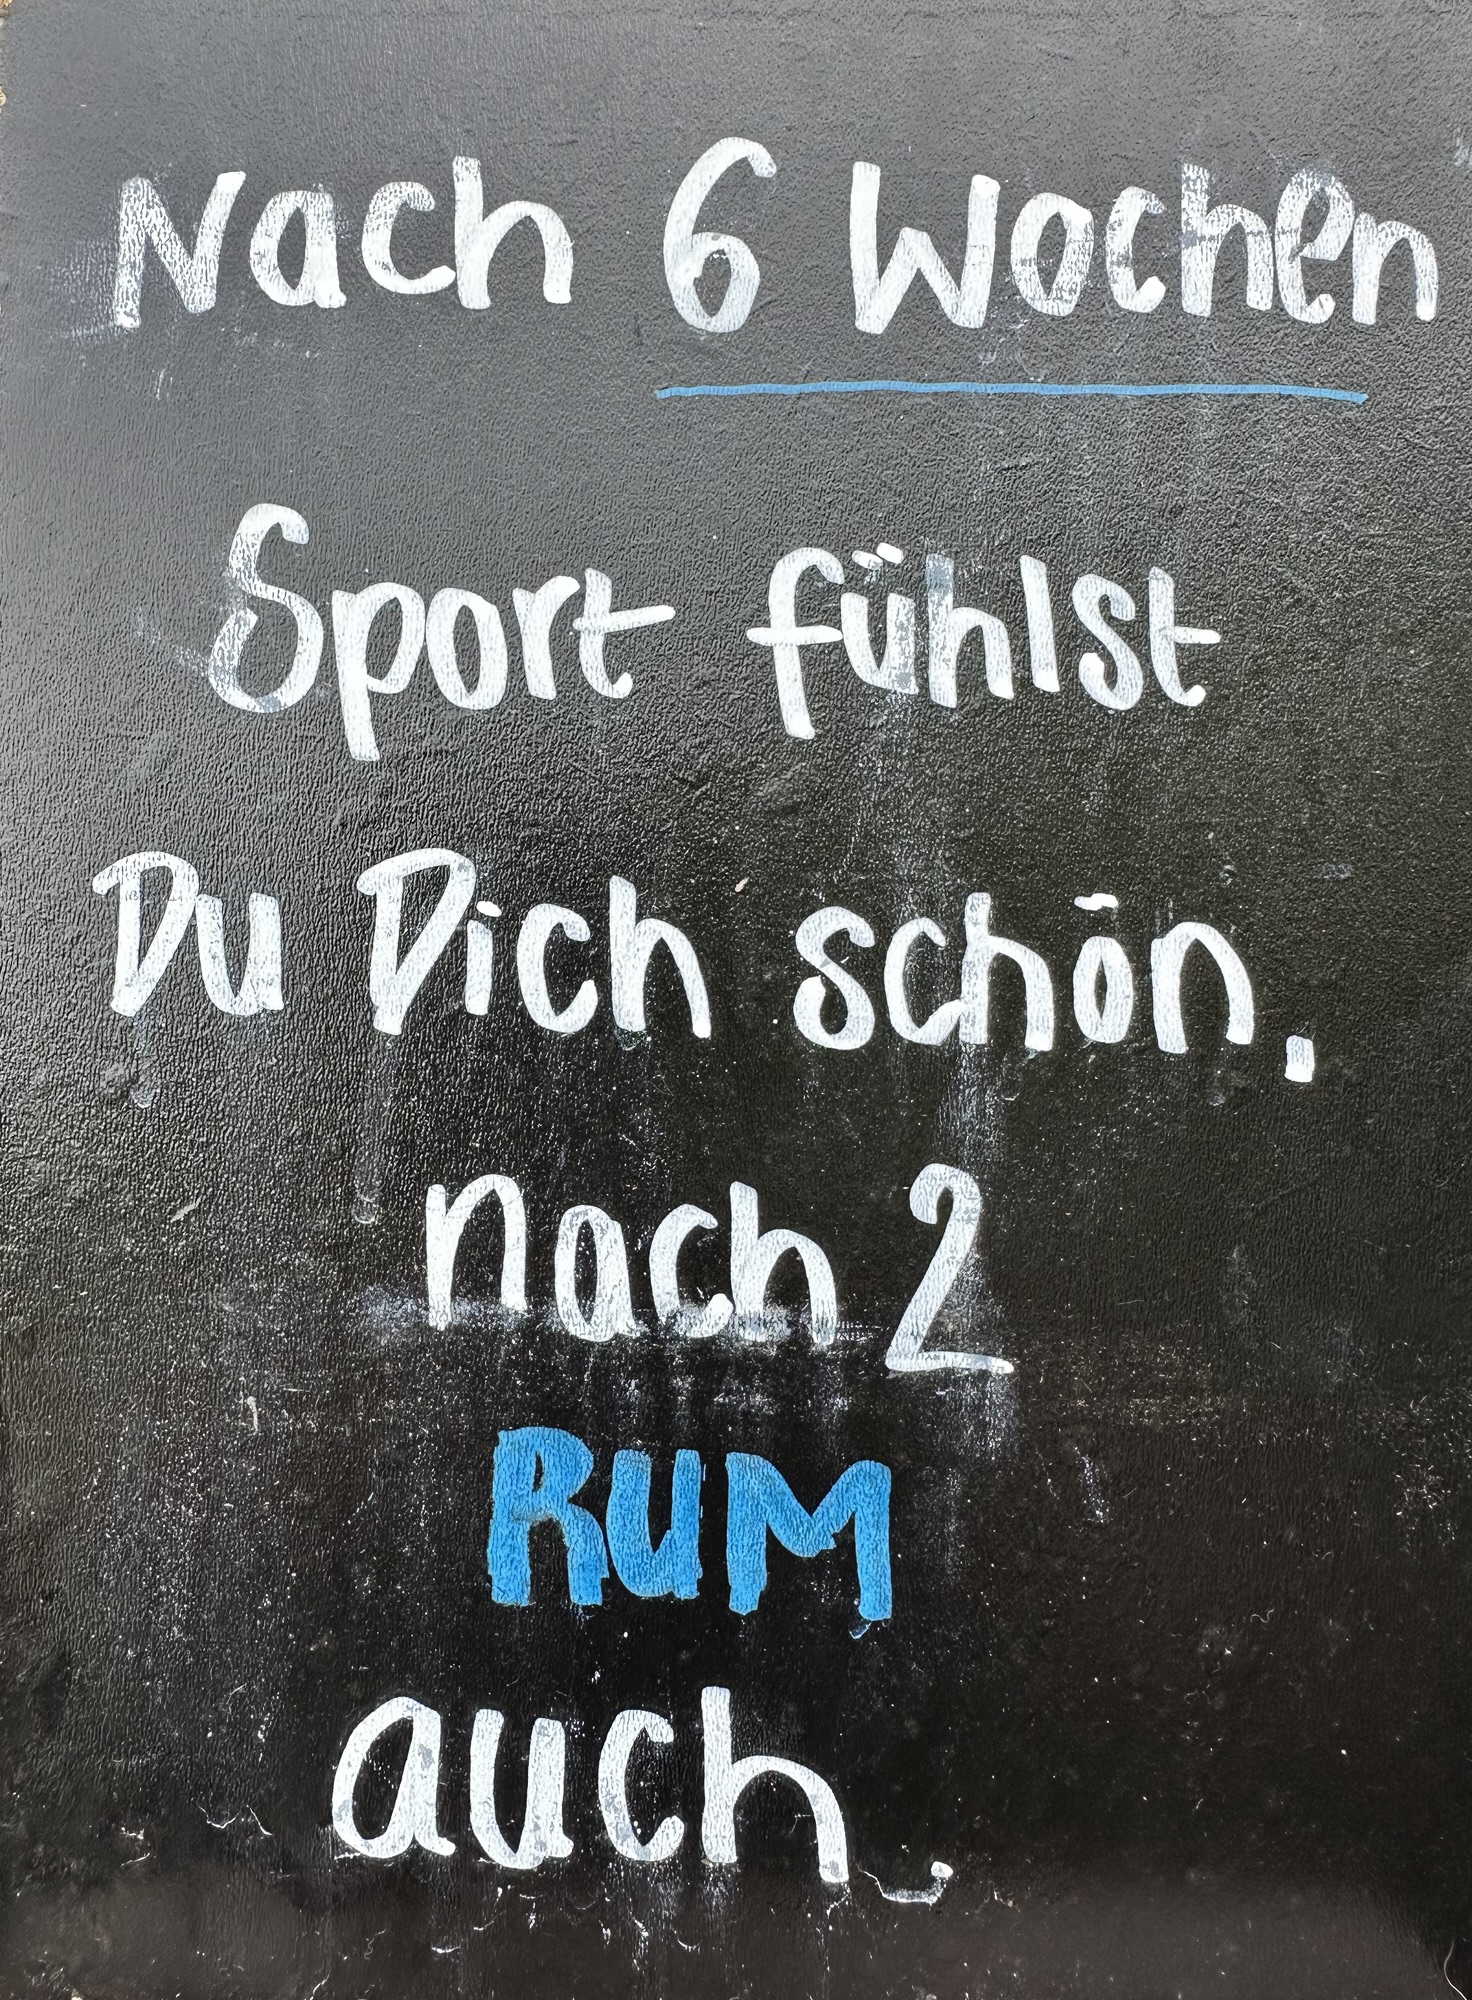 Nach 6 Wochen
Sport fühlst
Du Dich schön.
nach 2
RUM
auch.